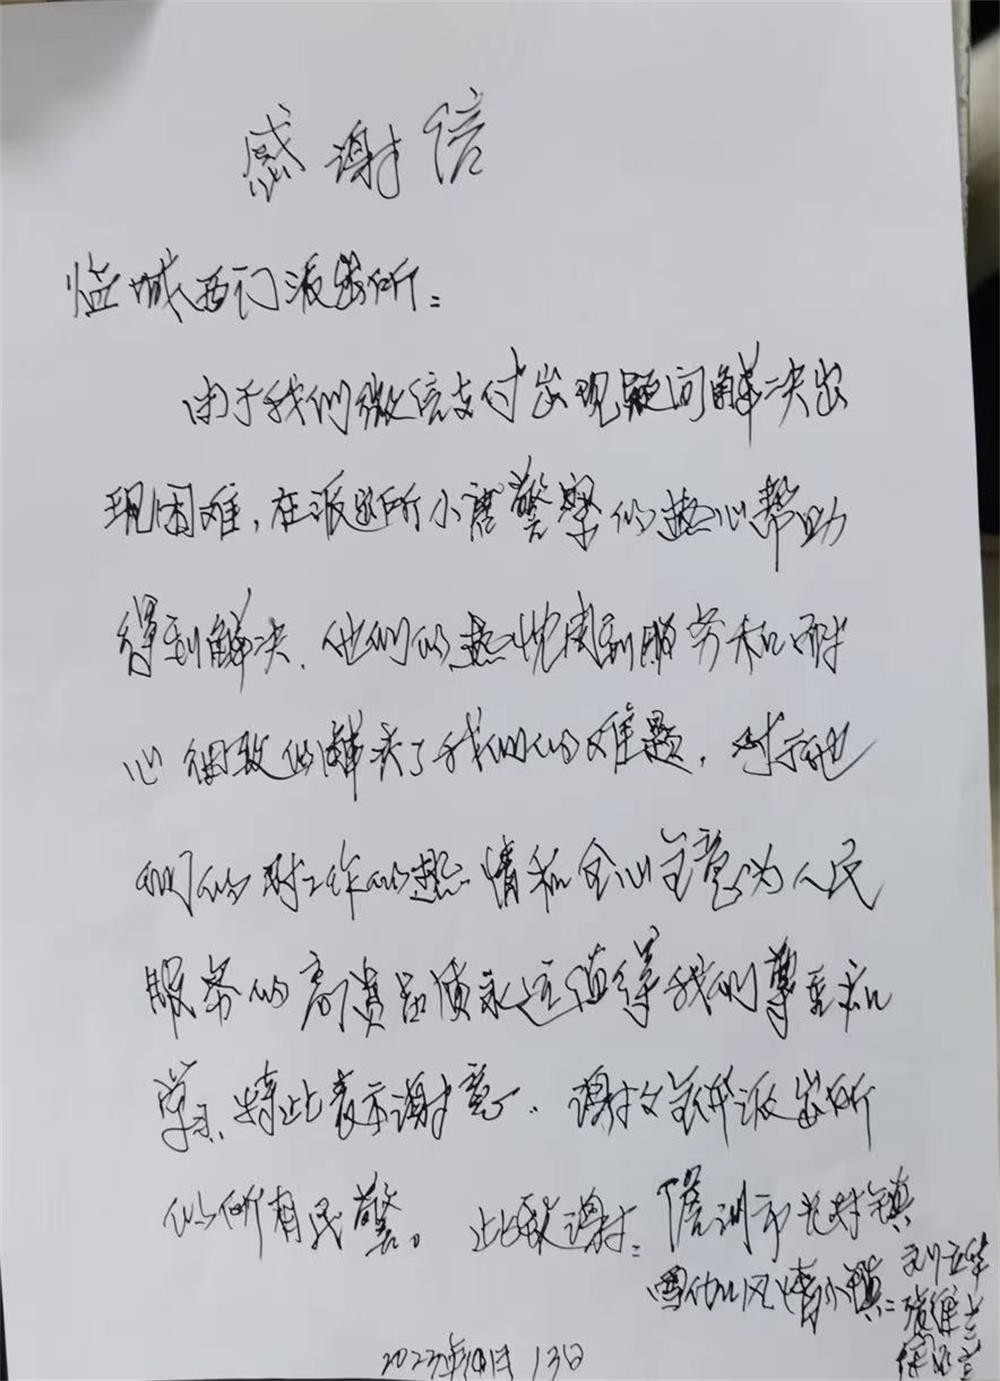 感谢信
临城西门派出所：
由于我们微信支付出现疑问解决出
现困难，在派出所小唐警察的热心帮助
得到解决。他们的热忱周到服务和耐
心细致的解决了我们的难题，对于他
们的对工作的热情和全心全意为人民
服务的高贵品质永远值得我们尊重和
学习，特此表示谢意。谢谢全体派出所
的所有民警。此致谢：儋州市光村镇
雪茄风情小镇：刘立华
2023年10月13日